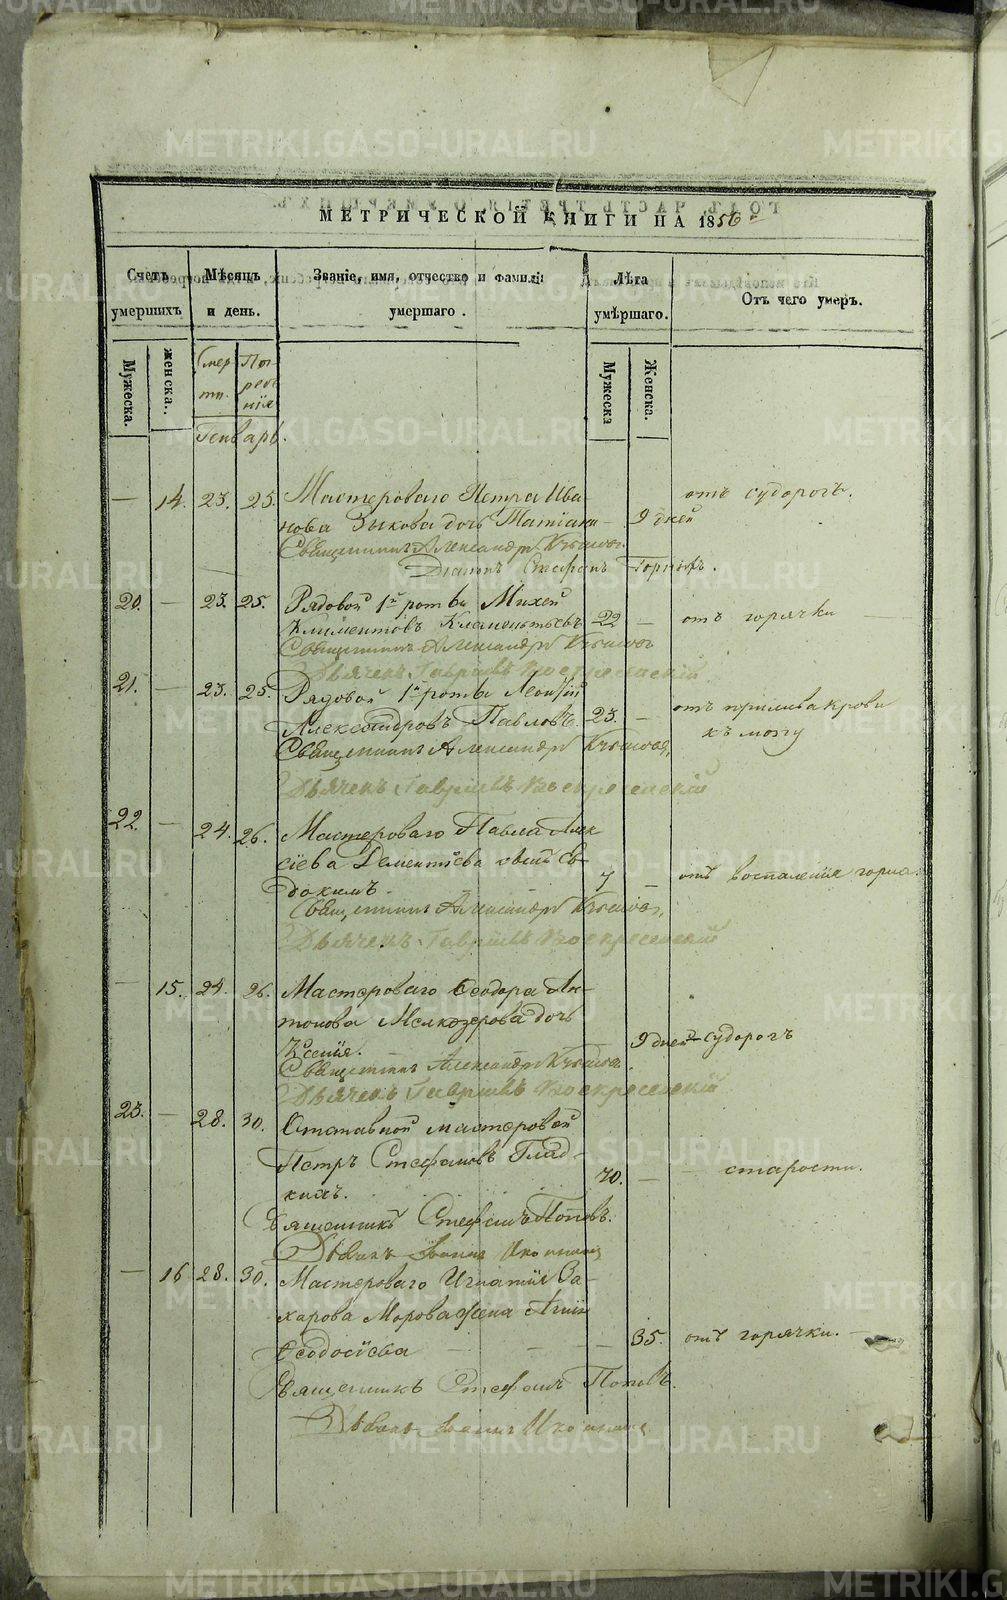 METRIKI.GASO-URAL.RU
МЕТРИЧЕСКОЙ КНИГИ НА 1856
Счетъ умершихъ
Мѣсяцъ и день.
Званіе, имя, отчество и фамилія умершаго.
Лѣта умѣршаго.
Отъ чего умеръ.
Мужеска.
женска.
Смерти.
Погребенія
Мужеска
Женска.
Генварь.
— 14. 23. 25. Мастероваго Петра Ива-
нова Зыкова дочь Татіана — 9 дней отъ судорогъ.
Священникъ Александръ
Діаконъ Стефанъ Горныхъ.
20. — 23. 25. Рядовой 1й роты Михей
Климентовъ Клементьевъ 22 — отъ горячки
Священникъ Александръ
Дьячекъ Гавріилъ Воскресенскій
21. — 23. 25. Рядовой 1й роты Леонтій
Александровъ Павловъ. 23. — отъ прилива крови
къ мозгу
Священникъ Александръ
Дьячекъ Гавріилъ Воскресенскій
22. — 24. 26. Мастероваго Павла Алек
сіева Дементьева сынъ Ев-
докимъ. 7 — отъ воспаленія горла.
Священникъ Александръ
Дьячекъ Гавріилъ Воскресенскій
— 15. 24. 26. Мастероваго Ѳеодора Ан-
тонова Мелкозерова дочь
Ксенія. 9 дней судорогъ
Священникъ Александръ
Дьячекъ Гавріилъ Воскресенскій
23. — 28. 30. Отставной мастеровой
Петръ Стефановъ Глад-
кихъ. 70. — старости.
Священникъ Стефанъ Поповъ.
Дьячекъ Іоаннъ
— 16 28. 30. Мастероваго Игнатія За-
харова Морова жена
Ѳеодосіева 35. отъ горячки.
Священникъ Стефанъ Поповъ.
Дьячекъ Іоаннъ